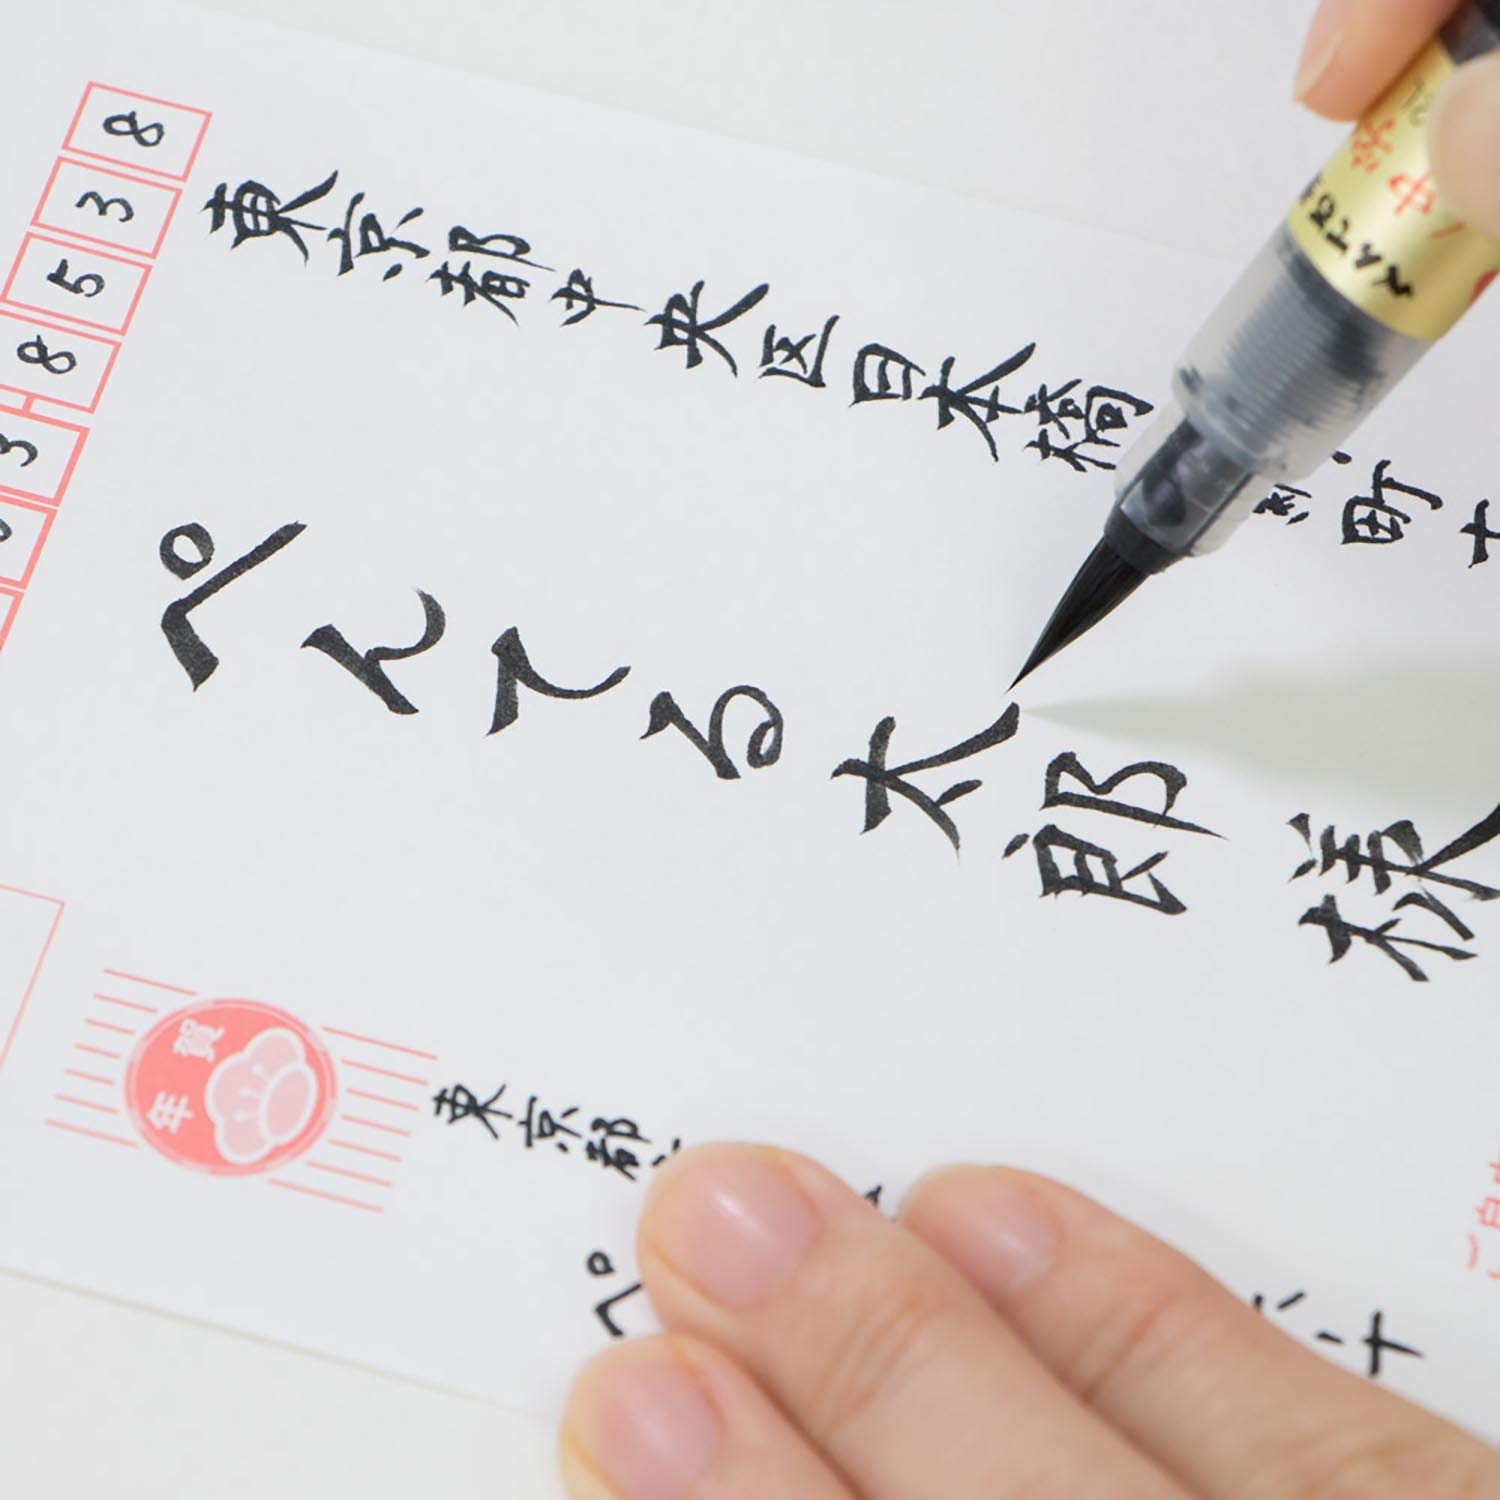 3-8538
東京都中央区日本橋
町
ぺんてる太郎様
年賀
東京都
ぺ
中字